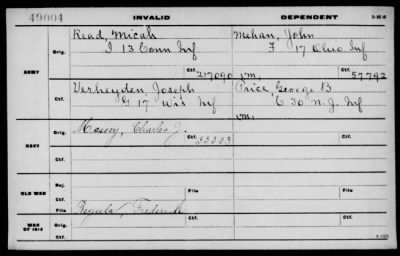 49004 INVALID DEPENDENT 3-25-6
Read, Micah Mehan, John
Orig. I 13 Conn Inf F 17 Ohio Inf
ARMY
Ctf. 217090 Ctf. 57792
Verheyden, Joseph Price, George B
G 17 Wis Inf C 30 N.J. Inf
Ctf.
Massey, Charles J.
Orig. Ctf. 33203 Ctf.
NAVY
Ctf.
Rej.
OLD WAR File File
Ctf.
Regula, Frederick
WAR OF 1812 Orig. Ctf. Ctf.